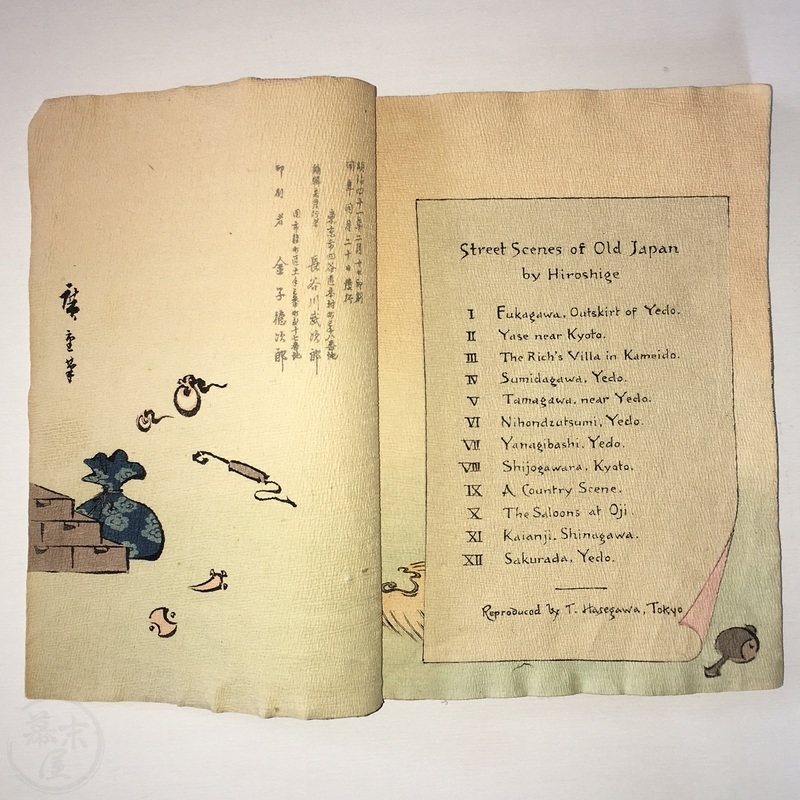 明治四十一年二月十日印刷
同年同月二十日發行
東京市四谷區本村町
編輯兼發行者 長谷川武次郎
印刷者 金子德次郎
廣重筆
Street Scenes of Old Japan
by Hiroshige
I Fukagawa, Outskirt of Yedo.
II Yase near Kyoto.
III The Rich's Villa in Kameido.
IV Sumidagawa, Yedo.
V Tamagawa, near Yedo.
VI Nihondzutsumi, Yedo.
VII Yanagibashi, Yedo.
VIII Shijogawara, Kyoto.
IX A Country Scene.
X The Saloons at Oji.
XI Kaianji, Shinagawa.
XII Sakurada, Yedo.
Reproduced by T. Hasegawa, Tokyo
幕末屋